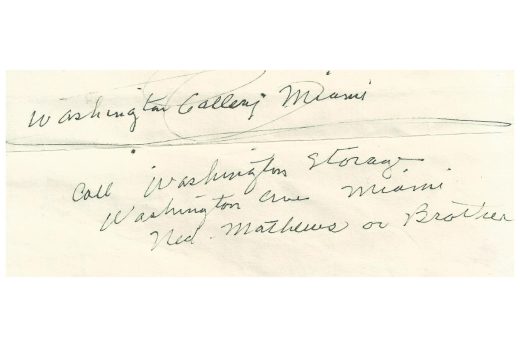 Washington Gallery Miami
Call Washington Storage
Washington Ave Miami
Ned Mathews or Brother